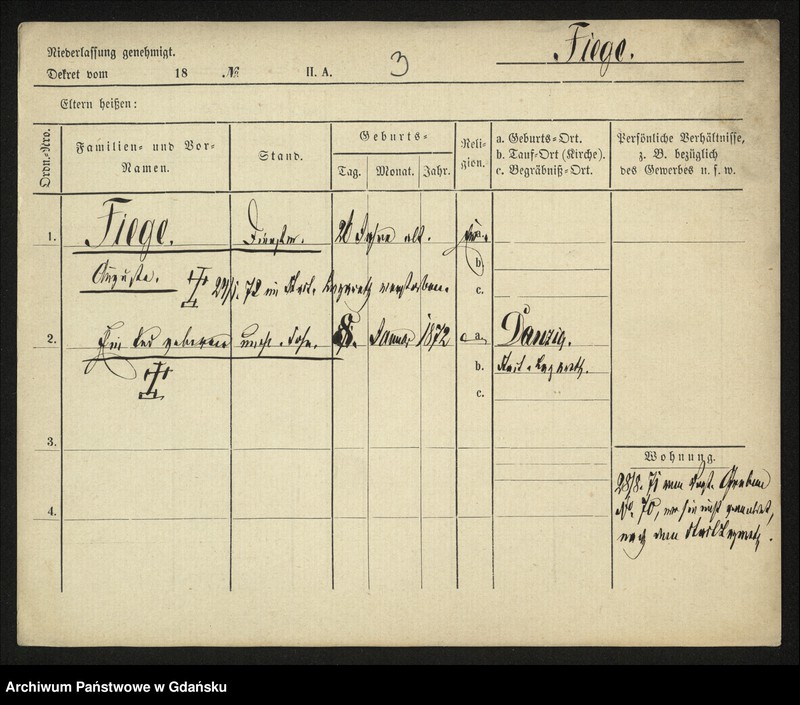 Fiege.
Niederlassung genehmigt.
Dekret vom 18 No II. A. 3
Eltern heißen:
Ordn.-Nro.
Familien- und Vor-
Namen.
Stand.
Geburts-
Tag. Monat. Jahr.
Reli-
gion.
a. Geburts-Ort.
b. Tauf-Ort (Kirche).
c. Begräbniß-Ort.
Persönliche Verhältnisse,
z. B. bezüglich
des Gewerbes u. s. w.
1. Fiege. Jahre alt. a.
Auguste. b.
72 im Stadt. Lazareth verstorben. c.
2. todt geboren unehl. Sohn. 8. Januar 1872 a. Danzig.
b. Stadt-Lazareth.
c.
3.
Wohnung.
28/8. 71 vom Graben
No. 70, wo sie nicht gemeldet,
nach dem Stadt Lazareth.
4.
Archiwum Państwowe w Gdańsku